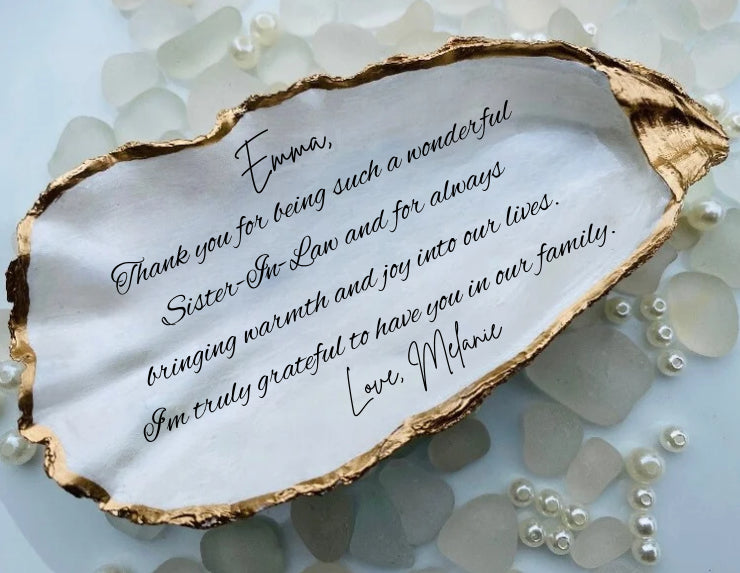 Emma,
Thank you for being such a wonderful
Sister-In-Law and for always
bringing warmth and joy into our lives.
I'm truly grateful to have you in our family.
Love, Melanie